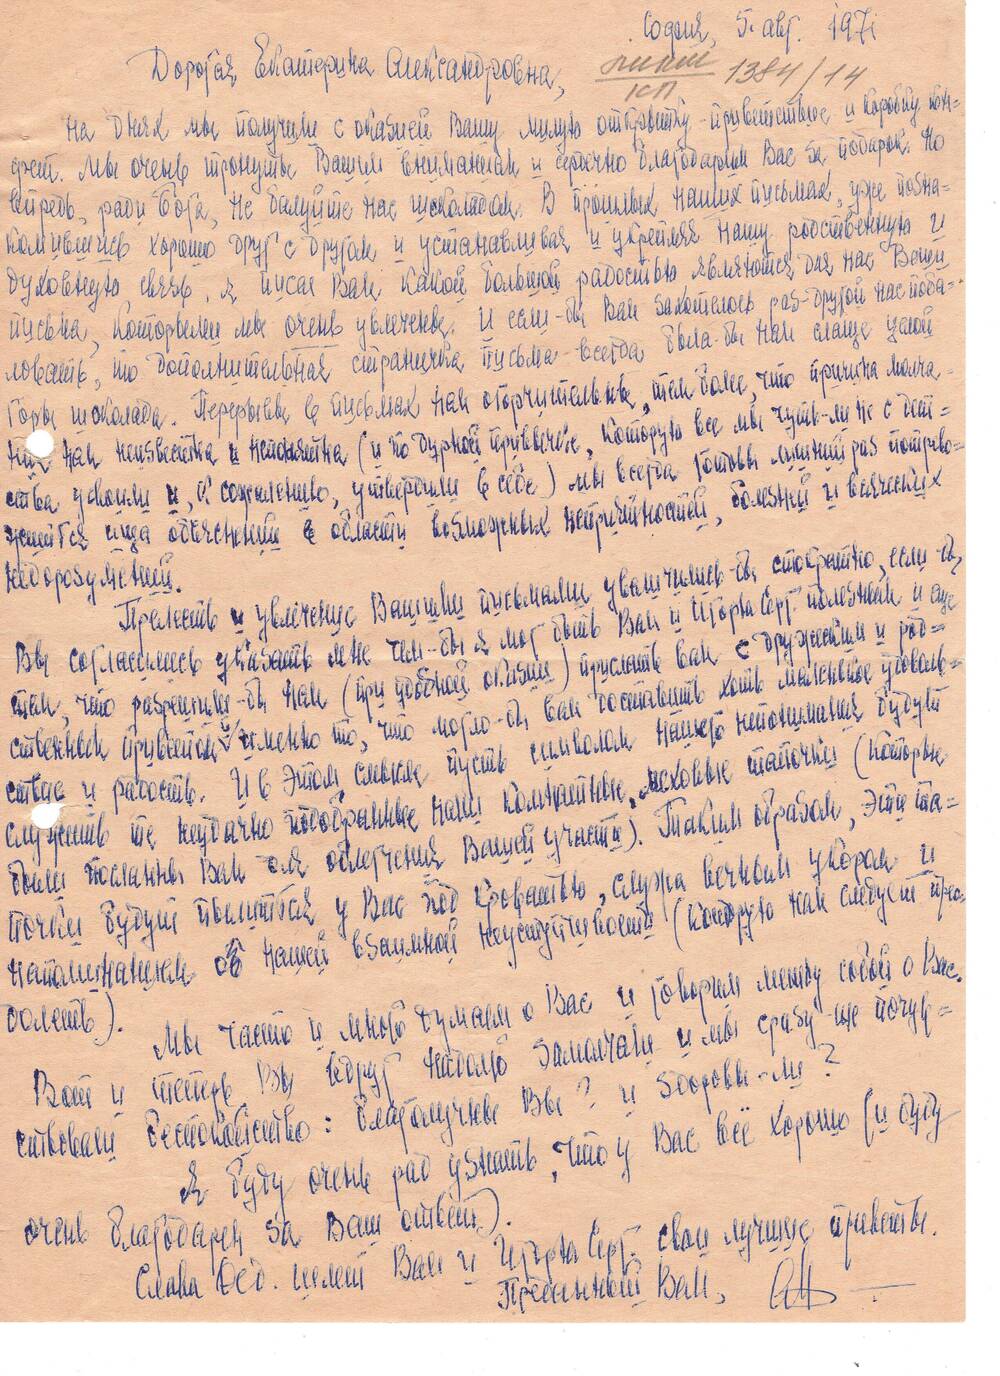 София, 5. авг. 1971
КП 1384/14
Дорогая Екатерина Александровна,
На днях мы получили с оказией Вашу милую открытку-приветствие и коробку кон-
фет. Мы очень тронуты Вашим вниманием и сердечно благодарим Вас за подарок. Но
впредь, ради Бога, не балуйте нас шоколадом. В прошлых наших письмах, уже позна-
комившись хорошо друг с другом и устанавливая и укрепляя нашу родственную и
духовную связь, я писал Вам какой большой радостью являются для нас Ваши
письма, которыми мы очень увлечены. И если-бы Вам захотелось раз-другой нас поба-
ловать, то дополнительная страничка письма всегда была-бы нам слаще узкой
горы шоколада. Перерывы в письмах нам огорчительны, тем более, что причина молча-
ния нам неизвестна и непонятна (и по дурной привычке, которую все мы чуть-ли не с дет-
ства усвоили и, к сожалению, утвердили в себе) мы всегда готовы лишний раз потрево-
житься ища объяснений в области возможных неприятностей, болезней и всяческих
недоразумений.
Прелесть и увлечение Вашими письмами увеличились-бы стократно, если-б,
Вы согласились указать мне чем-бы я мог быть Вам и Игорю Серг. полезным и еще
там, что разрешили-бы нам (при удобной оказии) прислать вам с дружеским и род-
ственным приветом именно то, что могло-бы вам доставить хоть маленькое удоволь-
ствие и радость. И в этом смысле пусть символом нашего непонимания будут
служить те неудачно подобранные нами комнатные, меховые тапочки (которые
были посланы Вам для облегчения Вашей участи). Таким образом, эти та-
почки будут пылиться у Вас под кроватью, служа вечным укором и
напоминанием об нашей взаимной неуступчивости (которую нам следует прео-
долеть).
Мы часто и много думаем о Вас и говорим между собой о Вас.
Вот и теперь Вы вдруг надолго замолчали и мы сразу-же почув-
ствовали беспокойство: благополучны Вы? и здоровы-ли?
Я буду очень рад узнать, что у Вас всё хорошо (и буду
очень благодарен за Ваш ответ).
Слава Фед. шлет Вам и Игорю Серг. свои лучшие приветы.
Преданный Вам,